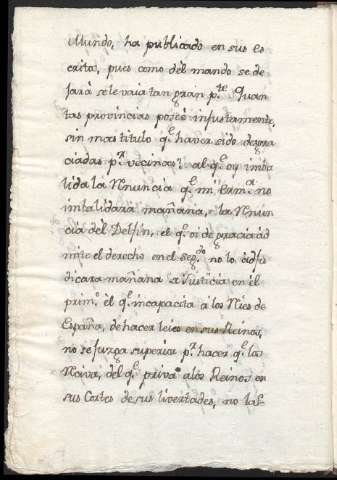 Mundo, ha publicado en sus es
critos, pues como del mando se de
jará se le vaia tan gran p.te Quan
tas provincias posee injustamente,
sin mas titulo q.e haver sido desgra
ciadas p.r vecinas? al q.e oy imba
lida la Rnuncia q.e mi Erm.a no
imbalidara mañana, la Rnun
cia del Delfin, el q.e oi de gracia ad
mite el derecho en el seg.do no lo adju
dicara mañana a Justicia en el
prim.o el q.e incapacita a los Ries de
España, de hacer leies en sus Reinos,
no se juzga superior p.a hacer q.e las
Reciva, del q.e priva a los Reinos en
sus Cortes de sus livertades, no las